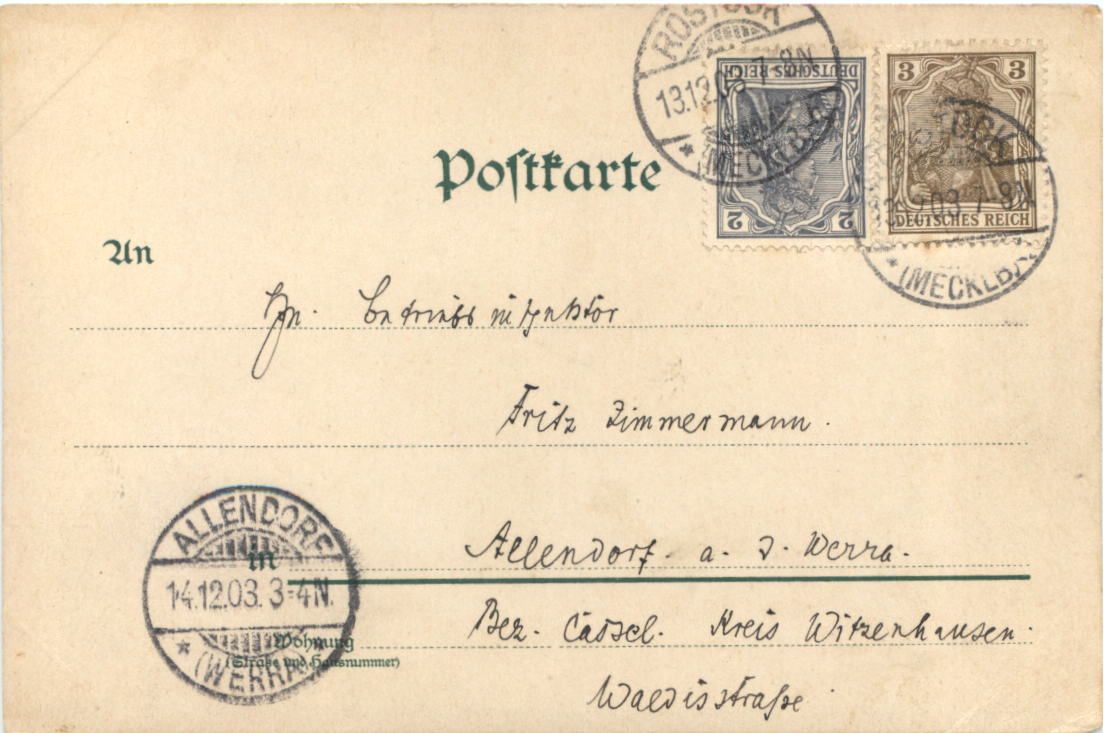 ROSTOCK
13.12.03 7-8N
* (MECKLB.)
DEUTSCHES REICH
2 2
3 3
DEUTSCHES REICH
OCK
13.12.03 7-8N
* (MECKLB.)
Postkarte
An
Betriebsinspektor
Fritz Zimmermann.
ALLENDORF
in
14.12.03. 3-4N.
* (WERRA) *
Allendorf. a. d. Werra.
Wohnung
(Straße und Hausnummer)
Bez. Cassel. Kreis Witzenhausen.
Waldisstraße